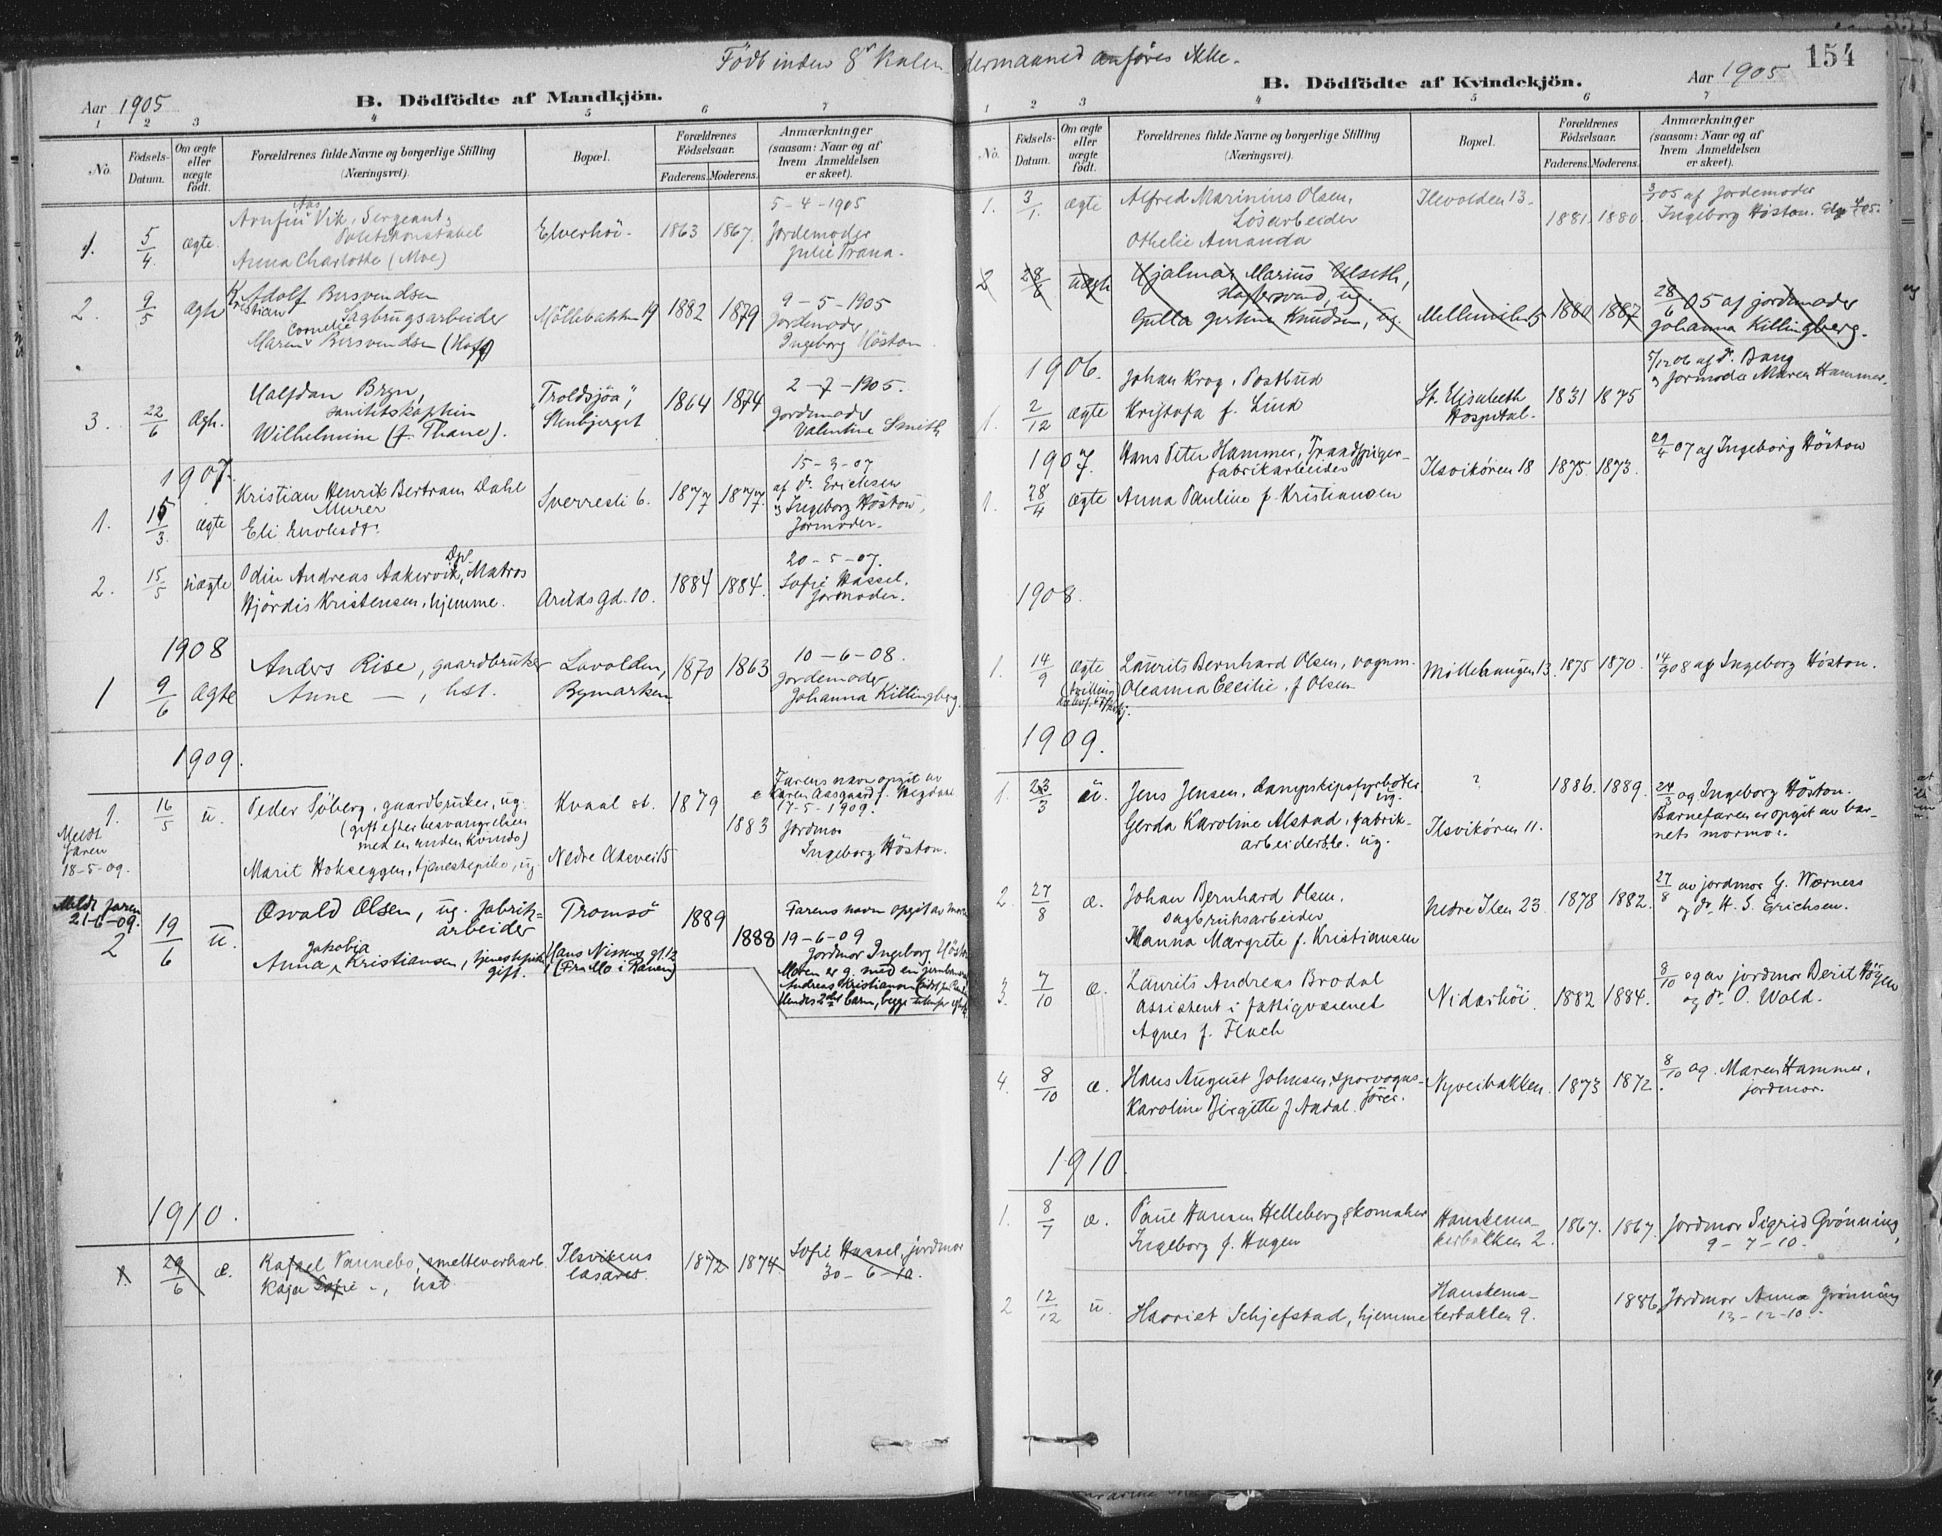 Födt inden 8de Kalendermaaned anføres ikke.
Aar 1905
B. Dödfödte af Mandkjön.
1 2 3 4 5 6 7
No.
Födsels-Datum.
Om ægte eller uægte födt.
Forældrenes fulde Navne og borgerlige Stilling (Næringsvei).
Bopæl.
Forældrenes Födselsaar.
Faderens. Moderens.
Anmærkninger (saasom: Naar og af hvem Anmeldelsen er skeet).
1. 5/4. ægte. Arnfin Vik, Sergeant, Elverhöi. 1863 1867. 5-4-1905
Politikonstabel Jordemoder
Anna Charlotte (Moe) Julie Prana.
2. 9/5 ægte Kristian Adolf Bersvendsen Möllebakken 19 1882 1879 9-5-1905
Sagbrugsarbeider Jordemoder
Maren Cornelie Bersvendsen Ingeborg Höston
3. 22/6 ægte. Halfdan Bryn, "Troldsjöa", 1864 1874 2-7-1905.
Sanitetskaptein Stenbjerget Jordemoder
Wilhelmine (f. Thane). Valentine Smith
1907.
1. 15/3. ægte Kristian Henrik Bertram Dahl Sverresli 6. 1877 1877. 15-3-07
Murer af dr. Erichsen
Eli Enoksdt. og Ingeborg Höston, Jormoder.
2. 15/5 uægte Odin Andreas Aakervik, Matros Arilds gd. 10. 1884 1884. 20-5-07.
Hjördis Kristensen, hjemme. Sofie Hassel. Jormoder.
1908
1 9/6 ægte Anders Rise, gaardbruker Lavolden, 1870 1863 10-6-08.
Anne —, hst. Bymarken Jordemoder
Johanna Killingberg.
1909.
1. 16/5 u. Peder Söberg, gaardbruker, ug. Kvaal st. 1879 Farens navn opgit av
(gift efter besvangrelsen Karen Aasgaard f.
med en anden kvinde) 1883 17-5-1909.
Meldt faren 18-5-09. Jordmor
Marit Hokseggen, tjenestepike, ug Nedre Ilsvei 15 Ingeborg Höston.
Meldt faren 21-6-09.
2 19/6 u. Osvald Olsen, ug. fabrik- Tromsö 1889 Farens navn opgit av moren
arbeider 1888 19-6-09
Anna Jakobia Kristiansen, tjenestepike Hans Nissens gt. 12 Jordmor Ingeborg Höston
gift. (Fra Mo i Ranen) Moren er g. med en
Andreas Kristiansen
Hendes 2det barn, begge
1910.
1. 29/6 æ. Rafael Vannebo, smelteverksarb. Ilsvikens 1872 1874. Sofie Hassel, jordmor
Kaja Sofie -, hst. lasaret. 30-6-10.
154
B. Dödfödte af Kvindekjön.
Aar 1905
1 2 3 4 5 6 7
No.
Födsels-Datum.
Om ægte eller uægte födt.
Forældrenes fulde Navne og borgerlige Stilling (Næringsvei).
Bopæl.
Forældrenes Födselsaar.
Faderens. Moderens.
Anmærkninger (saasom: Naar og af hvem Anmeldelsen er skeet).
1. 3/1 ægte Alfred Marinius Olsen, Ilevolden 13. 1881. 1880. 05 af Jordemoder
Lösarbeider Ingeborg Höston.
Othelie Amanda
2 28/6 uægte Hjalmar Marius Ulseth,
ug.
Gulla Gertine Knudsen, ug. Mellemila 1880 1887 28/6 05 af jordemoder
Johanna Killingberg.
1906.
1. 2/12 ægte Johan Krog, Postbud St. Elisabeth 1831 1875 5/12 06 af dr. Bang
Kristofa f. Lind Hospital. og Jormoder Maren Hammer.
1907.
1. 28/4 ægte Hans Peter Hammer, Traadspiger- Ilsvikören 18 1875 1873. 29/4 07 af Ingeborg Höston
fabrikarbeider
Anna Pauline f. Kristiansen
1908.
1. 14/9 ægte Laurits Bernhard Olsen, vognm. Möllehaugen 13. 1875 1870. 14/9 08 af Ingeborg Höston.
(tvilling Oleanna Cecilie, f Olsen
1909.
1. 23/3 u. Jens Jensen, dampskipsfyrböter ? 1886. 1889. 24/3 ag Ingeborg Höston.
ug. Barnefaren er opgit av bar-
Gerda Karoline Alstad, fabrik- Ilsvikören 11. nets mormor.
arbeiderske. ug.
2. 27/8 æ. Johan Bernhard Olsen, Nedre Ilen 23. 1878 1882. 27/8 av jordmor G. Wærness
sagbruksarbeider og dr. H. S. Erichsen.
Hanna Margrete f. Kristiansen
3. 7/10 æ. Laurits Andreas Brodal Nidarhöi. 1882 1884. 8/10 og av jordmor Berit
assistent i fattigvæsenet og dr. O. Wold.
Agnes f. Flach
4. 8/10 æ. Hans August Johnsen, sporvogns- Nyveibakken. 1873 1872. 8/10 ag. Maren Hammer,
förer. jordmor.
Karoline Birgitte f Andal.
1910.
1. 8/7 æ. Paul Hansen Helleberg, skomaker Hanskema- 1867. 1867. Jordmor Sigrid Grönning,
Ingeborg f. Haugen kerbakken 2. 9-7-10.
2 12/12 u. Harriet Schjefstad, hjemme Hanskema- 1886 Jordmor Anna Grönning
kerbakken 9. 13-12-10.